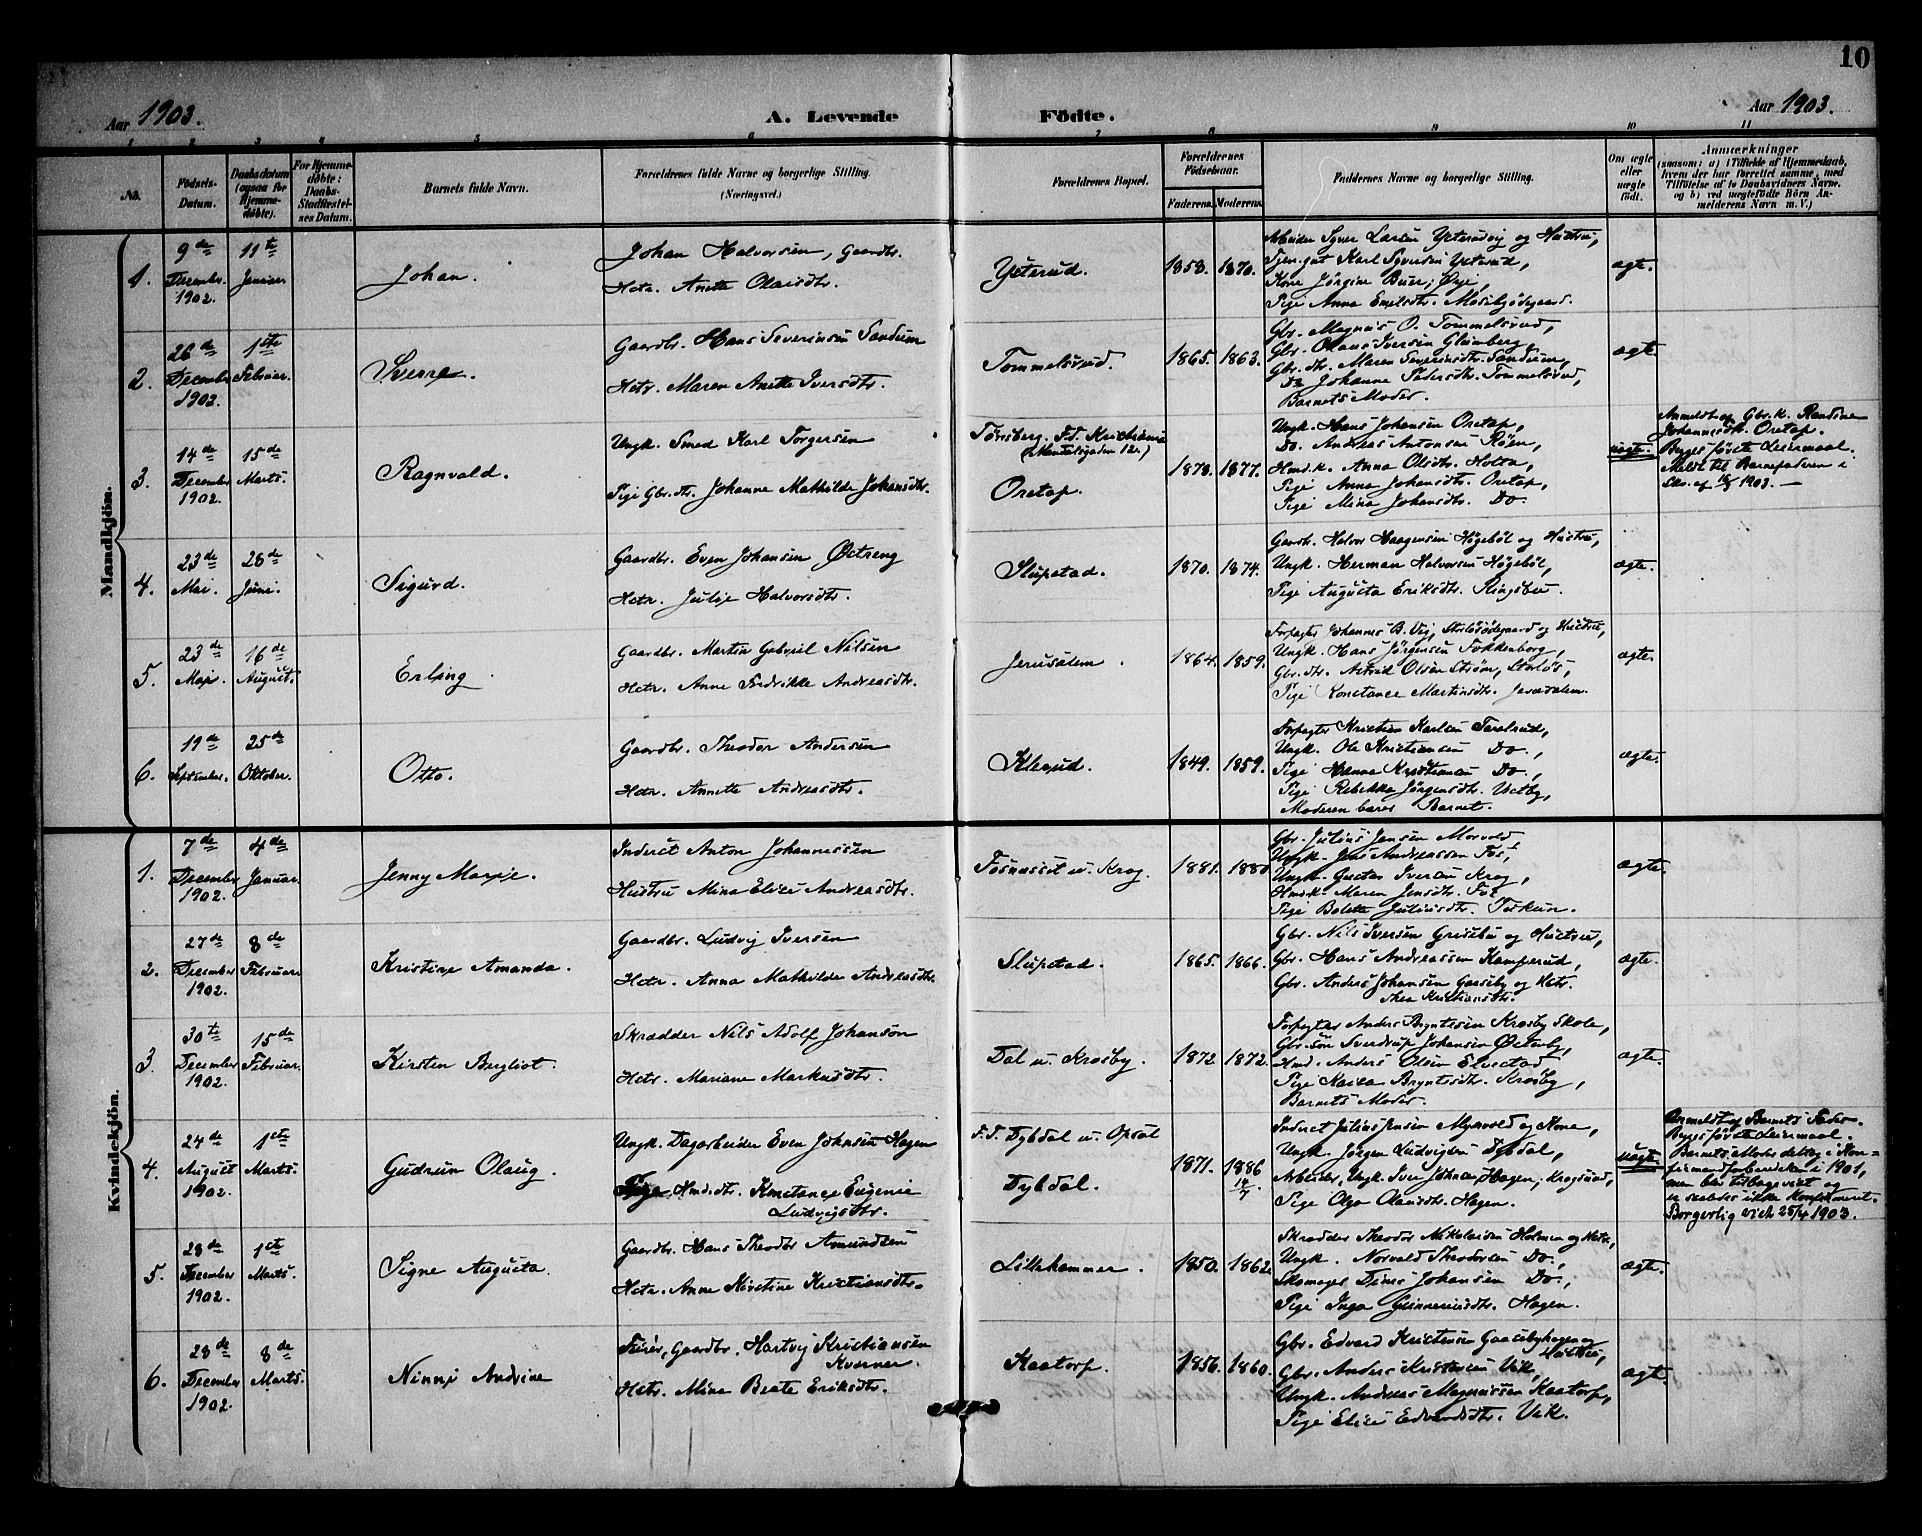 10
Aar 1903.
A. Levende
Födte.
Aar 1903.
1 2 3 4 5 6 7 8 9 10 11
No.
Födsels-
Datum.
Daabsdatum
(ogsaa for
Hjemme-
døbte).
For Hjemme-
døbte:
Daabs-
Stadfæstel-
ses Datum.
Barnets fulde Navn.
Forældrenes fulde Navne og borgerlige Stilling.
(Næringsvei.)
Forældrenes Bopæl.
Forældrenes
Födselsaar.
Faderens.
Moderens.
Faddernes Navne og borgerlige Stilling.
Om ægte
eller
uægte
født.
Anmærkninger
(saasom: a) i Tilfælde af Hjemmedaab,
hvem der har forrettet samme, med
Tilføielse af to Daabsvidners Navne.
og b) ved uægtefödte Börn An-
melderens Navn m. V.)
Mandkjön.
1.
9de
December
1902.
11te
Januar
Johan.
Johan Halvorsen, Gaardbr.
Hstr. Anette Olausdtr.
Ysterud.
1858.
1870.
Arbeider Syver Larsen Ysterudvig og Hustru,
Tjen.gut Karl Syversen Ysterud,
Kone Jörgine Buer, Øije,
Pige Anna Emilsdtr. Mosebjödegaard.
ægte.
2.
26de
December
1902.
1ste
Februar.
Sverre.
Gaardbr. Hans Severinsen Sandum
Hstr. Maren Anette Iversdtr.
Tommelsrud.
1865.
1863.
Gbr. Magnus O. Tommelsrud,
Gbr. Olaus Iversen Glenberg,
Gbr. dtr. Maren Severinsdtr. Sandum,
Do Johanne Pedersdtr. Tommelsrud,
Barnets Moder.
ægte.
3.
14de
December
1902.
15de
Marts.
Ragnvald.
Ungk. Smed Karl Torgersen
Pige Gbr.dtr. Johanne Mathilde Johansdtr.
Tønsberg. F.T. Kristiania
Oretop.
1878.
1877.
Ungk. Hans Johansen Oretop,
Do. Andreas Antonsen Röen,
Hmd.k. Anna Olsdtr. Holta,
Pige Anna Johansdtr. Oretop,
Pige Mina Johansdtr. Do.
uægte.
Anmeldt af Gbr.k. Randine
Johannesdtr. Oretop.
Begges første Leiermaal.
Meldt til Barnefaderen i
Skr. af 1903. —
4.
23de
Mai.
28de
Juni.
Sigurd.
Gaardbr. Even Johansen Østreng
Hstr. Julie Halvorsdtr.
Slupstad.
1870.
1874.
Gaardbr. Halvor Haagensen Högeböl og Hustru,
Ungk. Herman Halvorsen Högeböl,
Pige Augusta Eriksdtr. Ringsbu.
ægte.
5.
23de
Mai.
16de
August.
Erling
Gaardbr. Martin Gabriel Nilsen
Hstr. Anne Fredrikke Andreasdtr.
Jerusalem.
1864.
1859.
Forpagter Johannes B. Vig, Storlösödegaard og Hustru,
Ungk. Hans Jörgensen Fokkenborg,
Gbr. dtr. Astrid Olsen Ström, Storlös,
Pige Konstance Martinsdtr. Jerusalem.
ægte.
6.
19de
September.
25de
Oktober.
Otto.
Gaardbr. Theodor Andersen
Hstr. Annette Andreasdtr.
Klerud.
1849.
1859.
Forpagter Kristian Karlsen Taralrud,
Ungk. Ole Kristiansen Do.,
Pige Hanna Kristiansen Do.,
Pige Rebekka Jörgensdtr. Vestby,
Moderen bares Barnet.
ægte.
Kvindekjön.
1.
7de
December
1902.
4de
Januar.
Jenny Marie.
Inderst Anton Johannessen
Hustru Mina Elise Andreasdtr.
Fosnesset u. Krog.
1881.
1880
Gbr. Julius Jensen Morvold
Ungk. Jens Andreassen Fos,
Ungk. Gustav Iversen Krog,
Hmd.k. Maren Jensdtr. Fos
Pige Bolette Juliusdtr. Teksun.
ægte.
2.
27de
December
1902.
8de
Februar.
Kristine Amanda.
Gaardbr. Ludvig Iversen
Hstr. Anna Mathilde Andreasdtr.
Slupstad.
1865.
1866.
Gbr. Nils Iversen Grisebu og Hustru,
Gbr. Hans Andreassen Kamperud,
Gbr. Anders Johansen Gaasby og Hstr.
Thea Kristiansdtr.
ægte.
3.
30te
December
1902.
15de
Februar.
Kirsten Bergliot.
Skrædder Nils Adolf Johanson
Hstr. Mariane Markusdtr.
Dal u. Krosby.
1872
1872.
Forpagter Anders Bryntesen Krosby Skole,
Gbr.sön Sverdrup Johansen Østenby,
Hmd. Anders Olsen Elvestad
Pige Kaisa Bryntesdtr. Krosby,
Barnets Moder.
ægte.
4.
24de
August
1902.
1ste
Marts.
Gudrun Olaug.
Ungk. Dagarbeider Even Johansen Hagen
Pige Hmd.dtr. Konstance Eugenie
Ludvigsdtr.
F.T. Dybdal u. Opsal
Dybdal.
1871.
1886
14/7
Inderst Julius Jensen Myrvold og Kone,
Ungk. Jörgen Ludvigsen Dybdal,
Arbeider, Ungk. Iver Johansen Hagen, Krogsund,
Pige Olga Olausdtr. Hagen.
uægte.
Anmeldt af Barnets Fader.
Begges første Leiermaal.
Barnets Moder deltog i Kon-
firmandforberedelsen i 1901,
men blev tilbagevist og
er saaledes ikke konfirmeret.
Borgerlig viet 25/4 1903.
5.
28de
December
1902.
1ste
Marts.
Signe Augusta.
Gaardbr. Hans Theodor Amundsen
Hstr. Anne Kirstine Kristiansdtr.
Lillehammer.
1850.
1862.
Skrædder Theodor Nikolaisen Holmen og Hstr.,
Ungk. Norvald Theodorsen Do.,
Skomager Dines Johansen Do.,
Pige Inga Gunneriusdtr. Hagen.
ægte.
6.
28de
December
1902.
8de
Marts.
Ninni Andrine
Feier, Gaardbr. Hartvig Kristiansen
Kverner.
Hstr. Mina Beate Eriksdtr.
Kaatorp.
1856.
1860.
Gbr. Edvard Kristensen Gaasbyhagen og
Hustru,
Gbr. Anders Kristensen Vik,
Ungk. Andreas Magnussen Kaatorp,
Pige Elise Edvardsdtr. Vik.
ægte.